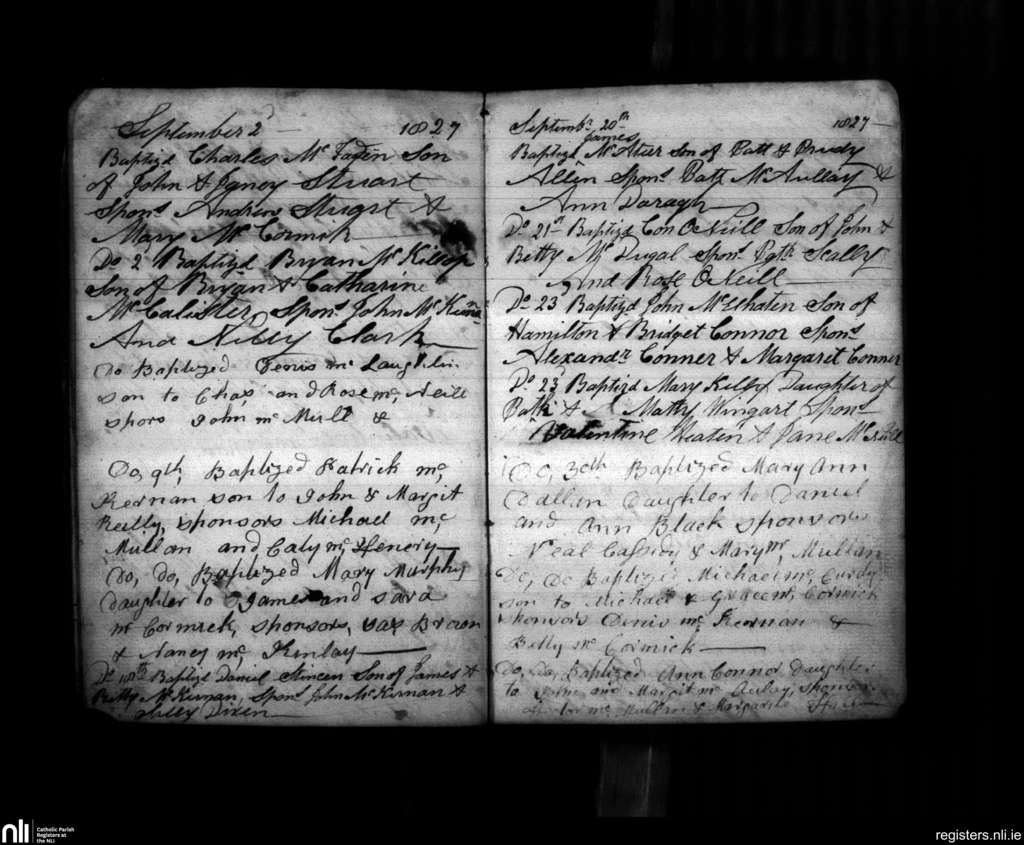 September 2d 1827
Baptizd Charles Mc Fagen Son
of John & Janey Stuart
Spons Andrew Stuart &
Mary Mc Cormick
Do 2 Baptizd Bryan Mc Killop
Son of Bryan & Catharine
Mc Calister, Spons John Mc
And Nilly Clark
Do Baptized Mc Laughlin
son to Chas and Rose Mc Neill
spors John Mc Mull &
Do, 9th, Baptized Patrick Mc,
Kernan son to John & Margit
Reilly, sponsors Michael Mc
Mullan and Caty Mc, Henery
Do, Do, Baptized Mary Murphy
daughter to James and Sara
Mc Cormick, sponsors, Brown
& Nancy Mc, Kinlay
Do 18th Baptizd Daniel Son of James &
Betty Mc Kirnan, Spons John Mc Kirnan &
Dixen
Septembr 20th 1827
James
Baptizd McAteer Son of Patt & Prudy
Allen Spons Patk McAullay &
Ann Daragh
Do 21st Baptizd Con ONeill Son of John &
Betty Mc Dugal Spons Patk Scally
And Rose ONeill
Do 23 Baptizd John McElhaten Son of
Hamilton & Bridget Connor Spons
Alexandr Conner & Margaret Conner
Do 23 Baptizd Mary Kelly Daughter of
Patk & Matty Wingart Spons
Valentine Heaten & Jane
Do, 30th Baptized Mary Ann
Daughter to Daniel
and Ann Black sponsors
Neal Cassidy & Mary Mc, Mullan
Do, Do Baptized Michael Mc, Curdy
son to Michael & Grace Mc, Cormick
sponsors Denis Mc Keernan &
Betty Mc Cormick
Do, Do, Baptized Ann Connor daughter
to and Margit Mc Auley, Sponsors
Mc Mullan & Margaret
nli
Catholic Parish
Registers at
the NLI
registers.nli.ie